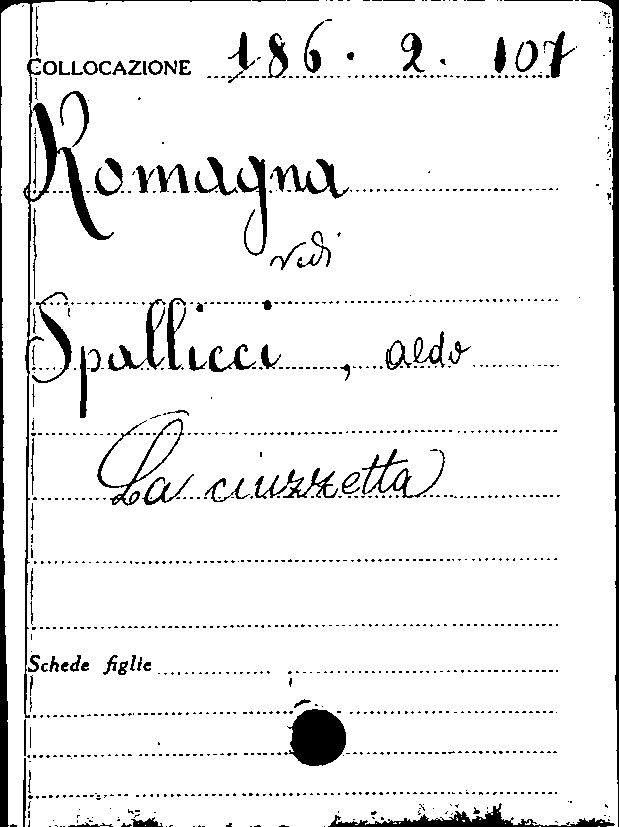 COLLOCAZIONE 186. 2. 107
Romagna
vedi
Spallicci, aldo
La ciuzzetta
Schede figlie